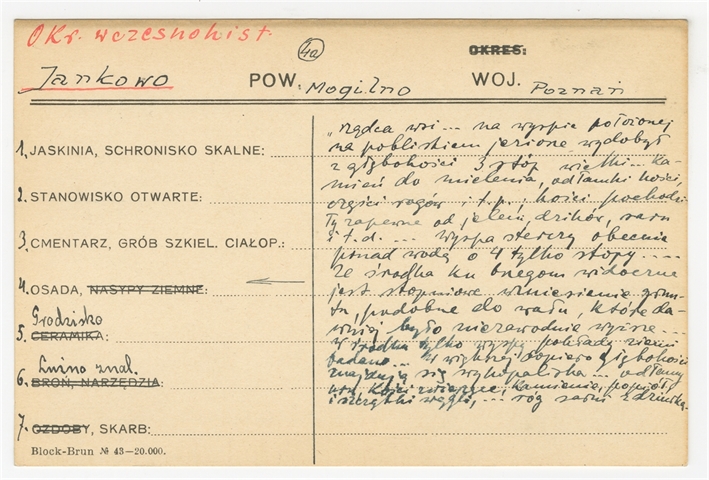 OKr. wczesnohist.
4a
OKRES:
Jankowo POW. Mogilno WOJ. Poznań
1. JASKINIA, SCHRONISKO SKALNE:
2. STANOWISKO OTWARTE:
3. CMENTARZ, GRÓB SZKIEL. CIAŁOP.:
4. OSADA, NASYPY ZIEMNE:
Grodzisko
5. CERAMIKA:
Luźno znal.
6. BROŃ, NARZĘDZIA:
7. OZDOBY, SKARB:
Block-Brun № 43—20.000.
„rządca wsi ... na wyspie położonej
na pobliskiem jeziorze wydobył
z głębokości 3 stóp wielki ... ka-
mień do mielenia, odłamki kości,
części rogów i t.p.; kości pochodzi-
ły zapewne od jeleni, dzików, sarn
i t.d. ... Wyspa sterczy obecnie
ponad wodą o 4 tylko stopy ....
Ze środka ku brzegom widoczne
jest stopniowe wzniesienie grun-
tu, podobne do wału, które da-
wniej było niezawodnie wyższe ...
W środku tylko wyspy pokłady ziemi
badano ... W większej dopiero głębokości
znajdują się wykopaliska ... odłamy
kości zwierzęce, kamienie, popioły
i szczątki węgli, ... róg sarni z dziurką.